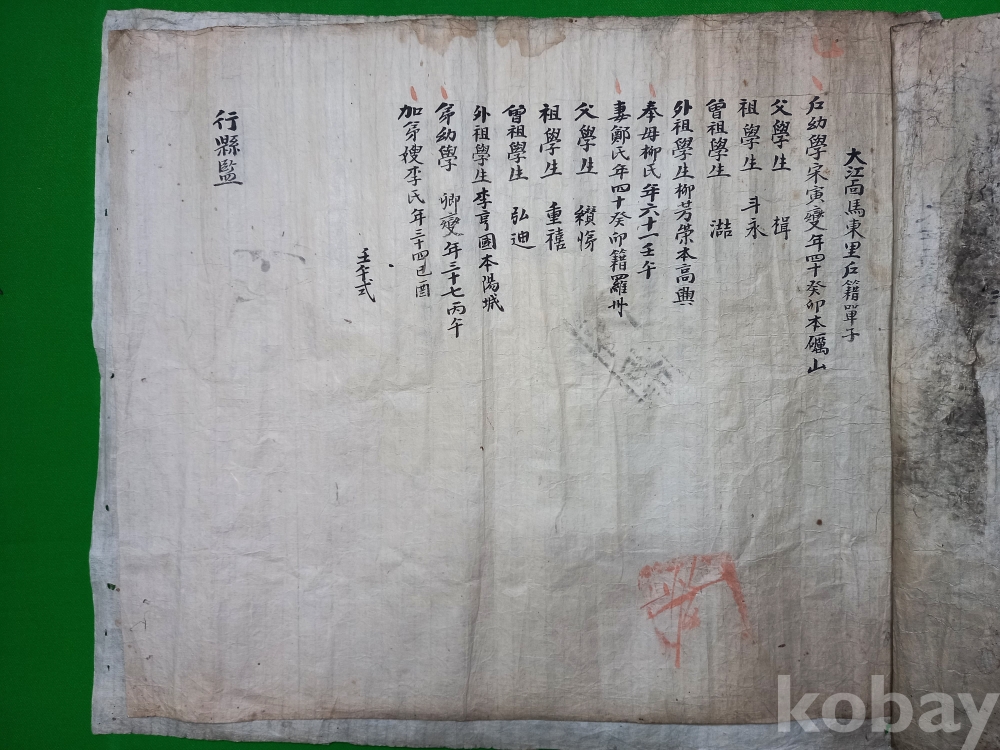 大江面馬東里戶籍單子
戶幼學宋寅燮年四十癸卯本礪山
父學生 楫
祖學生 斗永
曾祖學生 澔
外祖學生柳芳榮本高興
奉母柳氏年六十一壬午
妻鄭氏年四十癸卯籍羅州
父學生 纘
祖學生 重禧
曾祖學生 弘迪
外祖學生李亨國本陽城
弟幼學 卿燮年三十七丙午
加弟嫂李氏年三十四己酉
壬午式
行縣監
kobay